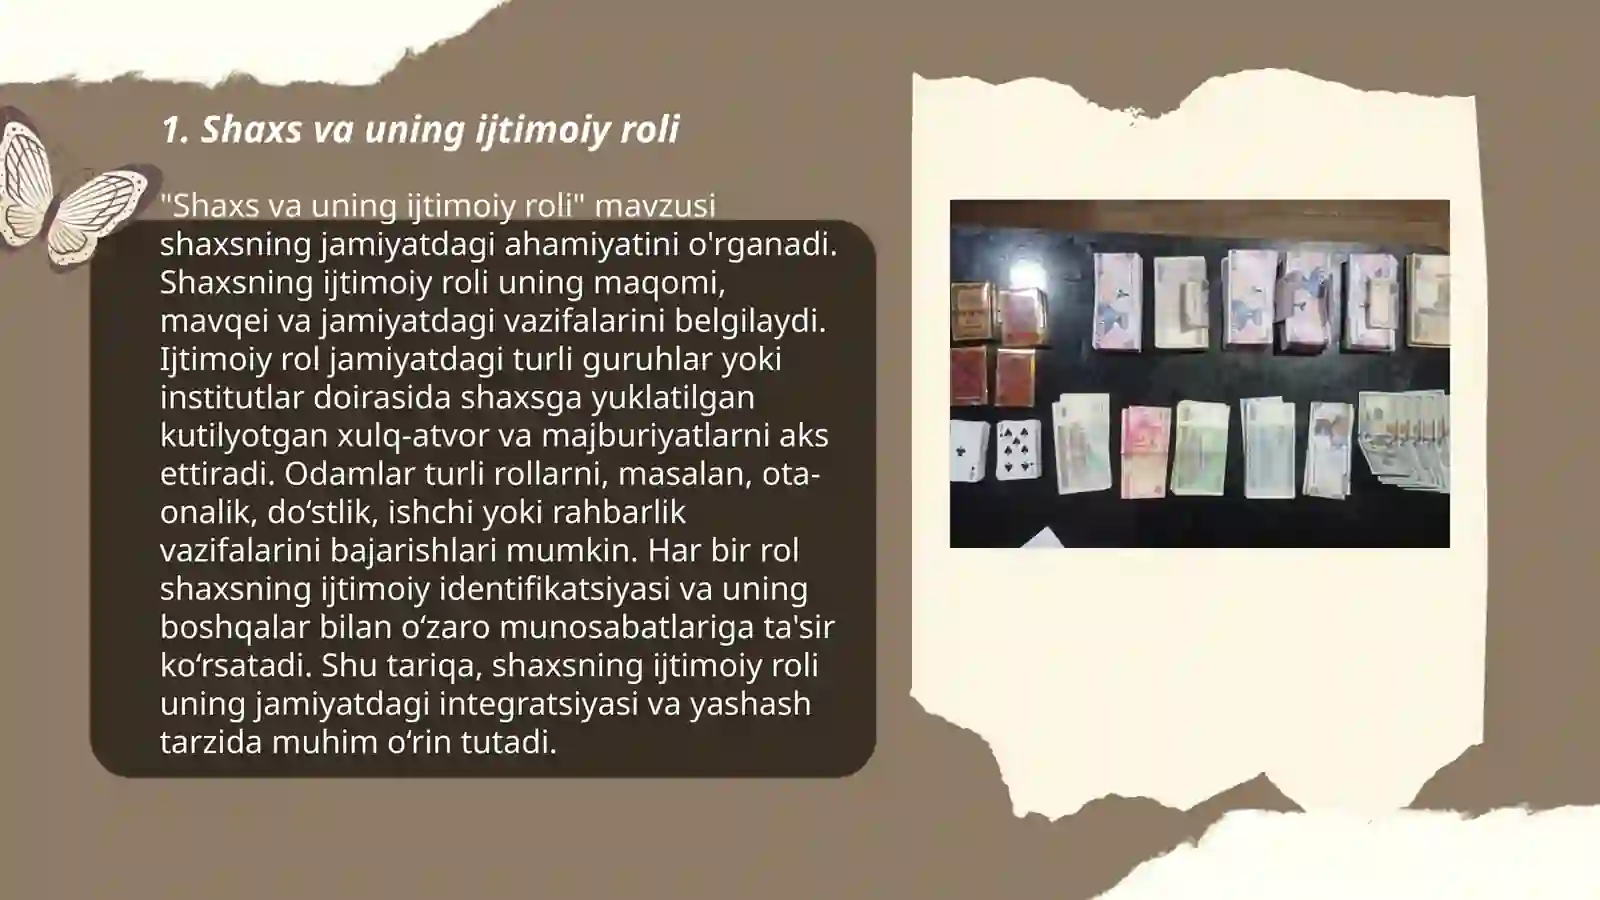 1. Shaxs va uning ijtimoiy roli
"Shaxs va uning ijtimoiy roli" mavzusi
shaxsning jamiyatdagi ahamiyatini o'rganadi.
Shaxsning ijtimoiy roli uning maqomi,
mavqei va jamiyatdagi vazifalarini belgilaydi.
Ijtimoiy rol jamiyatdagi turli guruhlar yoki
institutlar doirasida shaxsga yuklatilgan
kutilyotgan xulq-atvor va majburiyatlarni aks
ettiradi. Odamlar turli rollarni, masalan, ota-
onalik, do‘stlik, ishchi yoki rahbarlik
vazifalarini bajarishlari mumkin. Har bir rol
shaxsning ijtimoiy identifikatsiyasi va uning
boshqalar bilan o‘zaro munosabatlariga ta'sir
ko‘rsatadi. Shu tariqa, shaxsning ijtimoiy roli
uning jamiyatdagi integratsiyasi va yashash
tarzida muhim o‘rin tutadi.